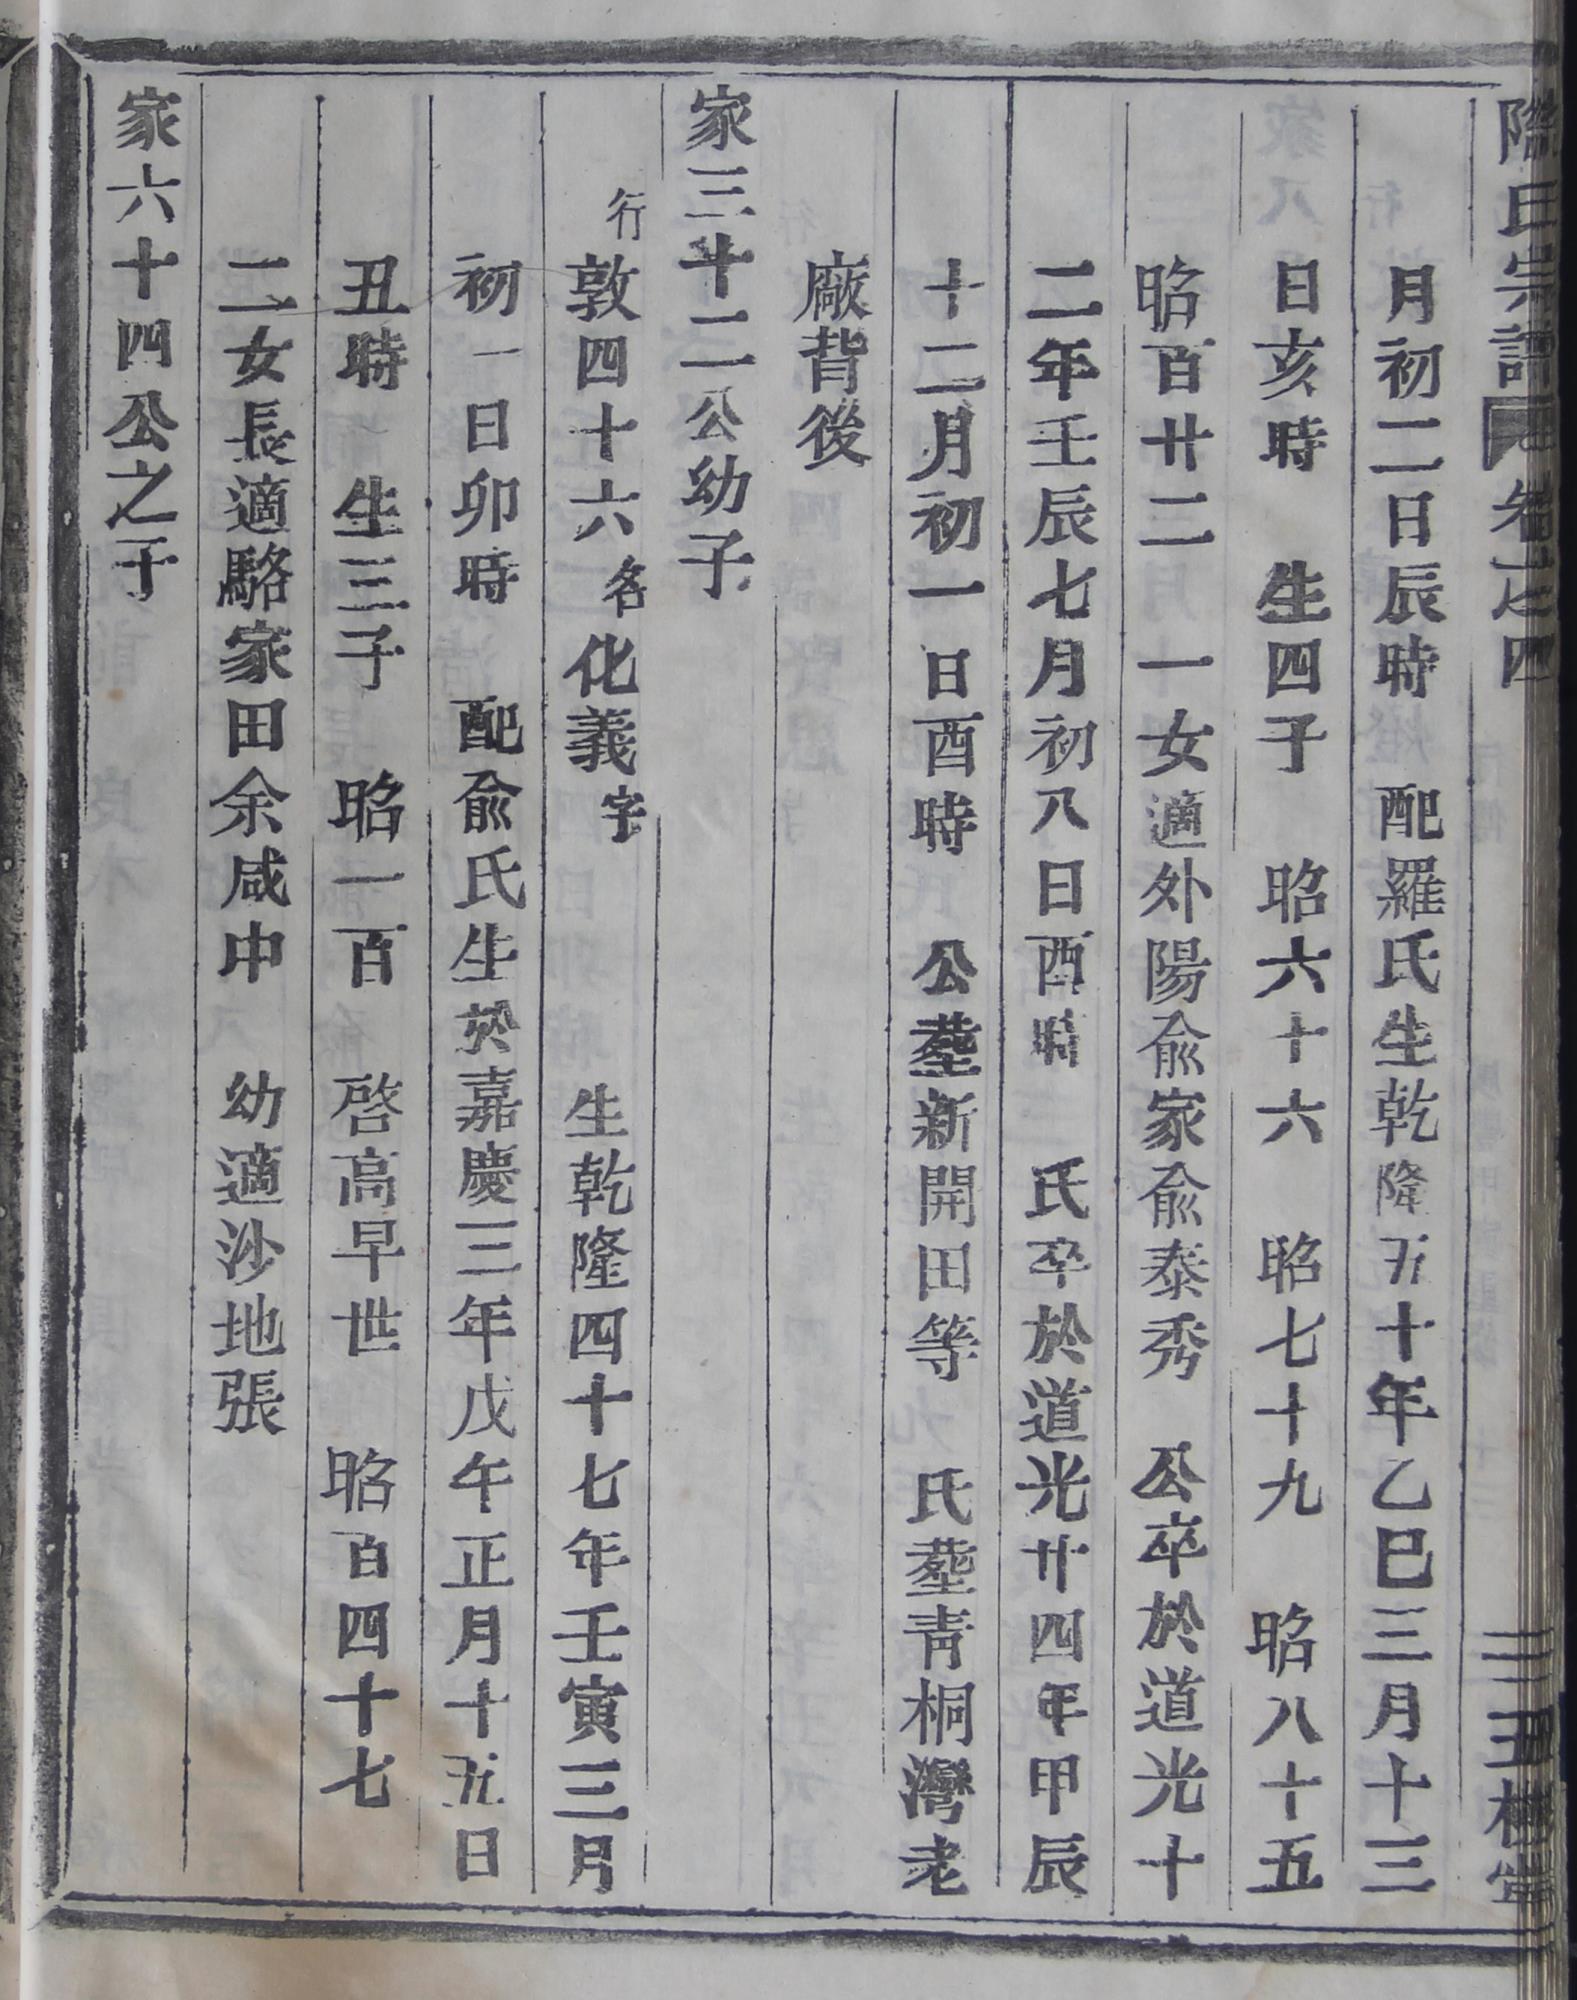 氏宗譜 卷之四 三
月初二日辰時 配羅氏生乾隆五十年乙巳三月十三
日亥時 生四子 昭六十六 昭七十九 昭八十五
昭百廿二 一女適外陽俞家俞泰秀 公卒於道光十
二年壬辰七月初八日酉時 氏卒於道光廿四年甲辰
十二月初一日酉時 公塟新開田等 氏塟青桐灣老
廠背後
家三十二公幼子
行敦四十六名化義字 生乾隆四十七年壬寅三月
初一日卯時 配俞氏生於嘉慶三年戊午正月十五日
丑時 生三子 昭一百 啓高早世 昭百四十七
二女長適駱家田余咸中 幼適沙地張
家六十四公之子